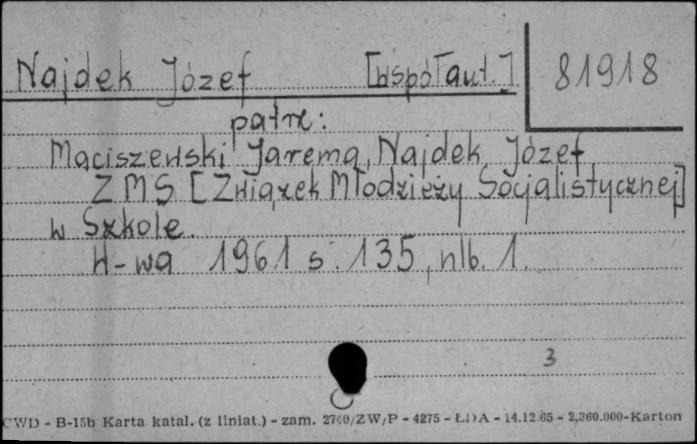 Najdek Józef [współaut.] 81918
patrz:
Maciszewski Jarema, Najdek Józef
ZMS [Związek Młodzieży Socjalistycznej]
w Szkole.
W-wa 1961 s. 135, nlb. 1.
3
CWD - B-15b Karta katal. (z liniat.) - zam. 2740/ZW/P - 4275 - ŁDA - 14.12.65 - 2,360.000-Karton